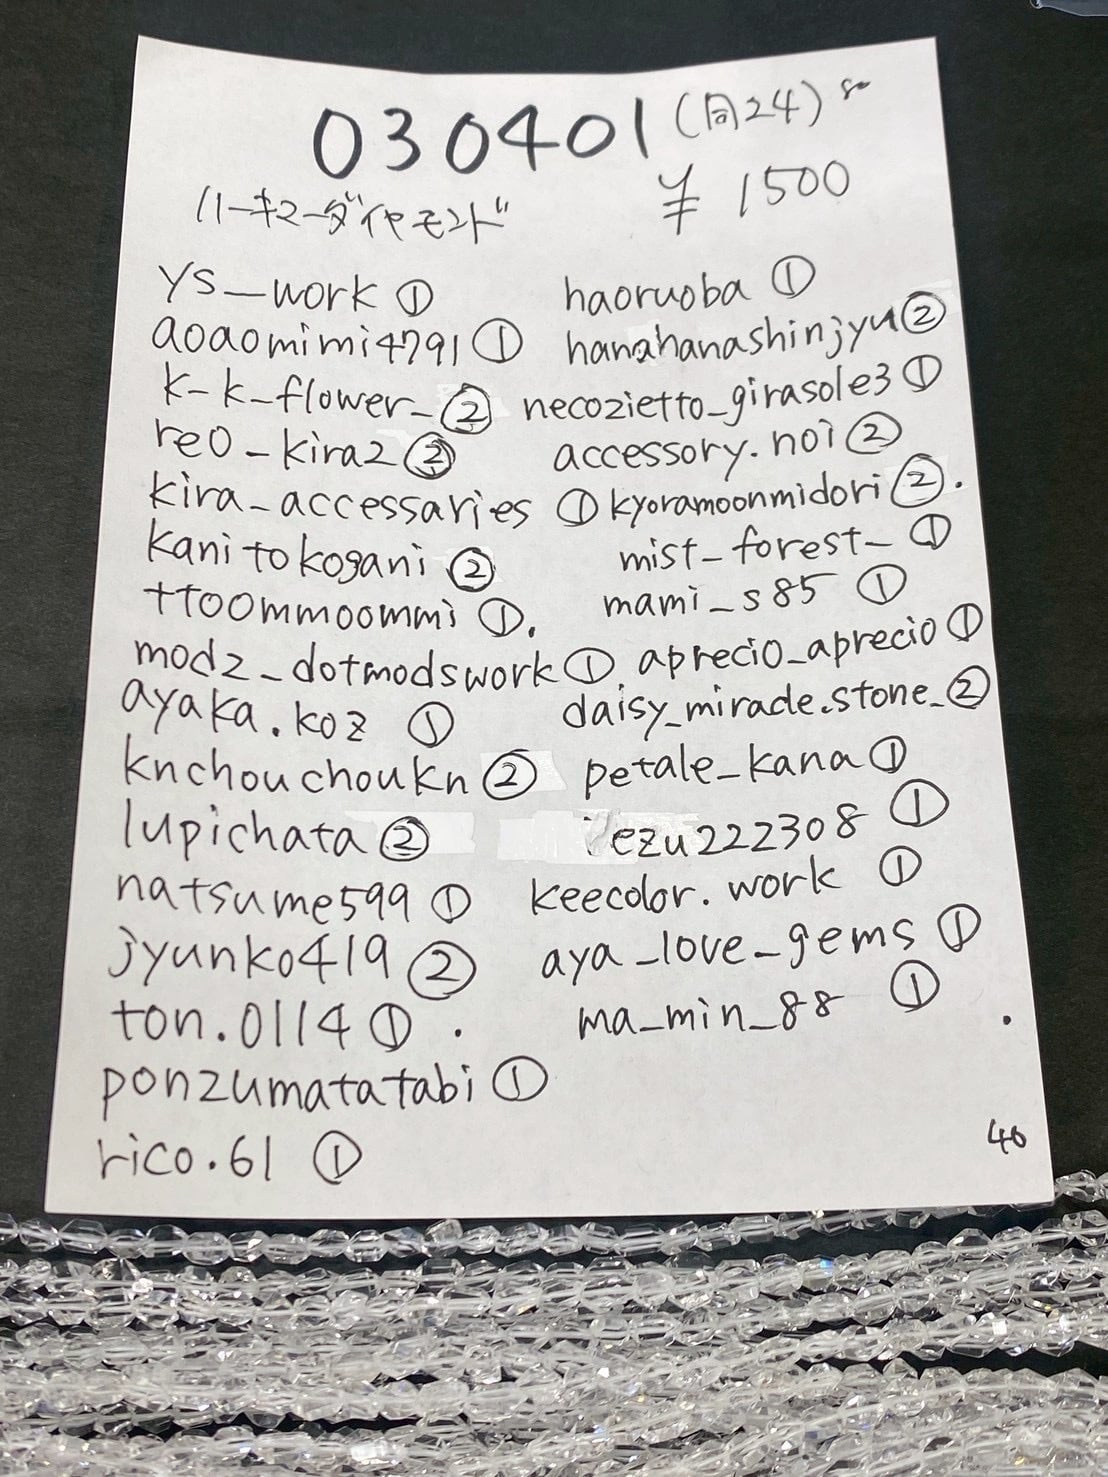 030401 (同24)
ハーキマーダイヤモンド ¥1500
ys_work ①
aoaomimi4791 ①
k-k-flower_ ②
reo_kira2 ②
kira_accessaries ①
kanitokogani ②
ttoommoommi ①.
modz_dotmodswork ①
ayaka.koz ①
knchouchoukn ②
lupichata ②
natsume599 ①
jyunko419 ②
ton.0114 ① .
ponzumatatabi ①
rico.61 ①
haoruoba ①
hanahanashinjyu ②
necozietto_girasole3 ①
accessory.noi ②
kyoramoonmidori ②.
mist_forest_ ①
mami_s85 ①
aprecio_aprecio ①
daisy_mirade.stone_ ②
petale_kana ①
ezu222308 ①
keecolor.work ①
aya_love_gems ①
ma_min_88 ①